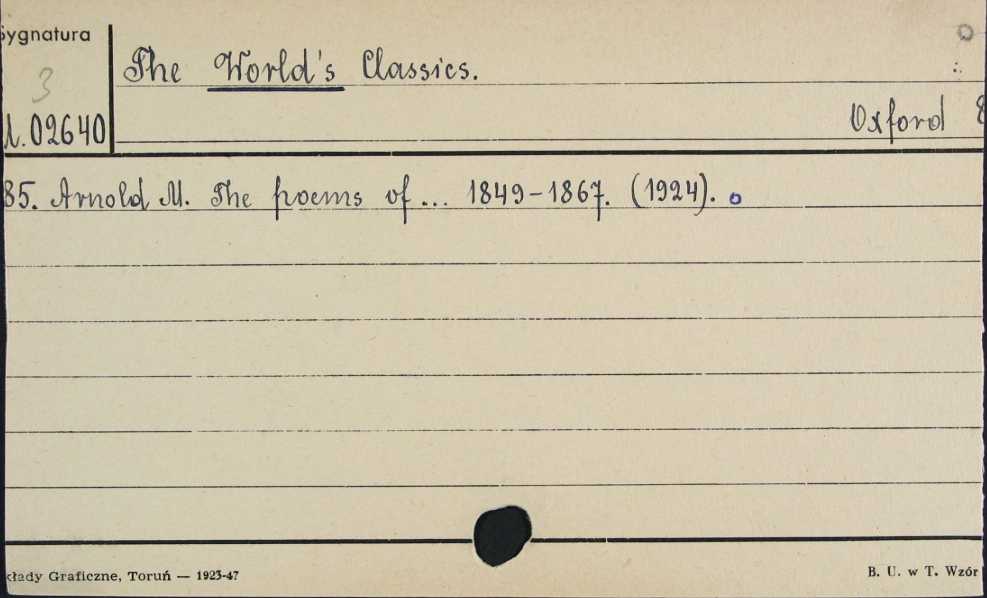 Sygnatura
3
The World's Classics.
02640
Oxford 8
85. Arnold M. The poems of... 1849-1867. (1924).
kłady Graficzne, Toruń — 1923-47
B. U. w T. Wzór